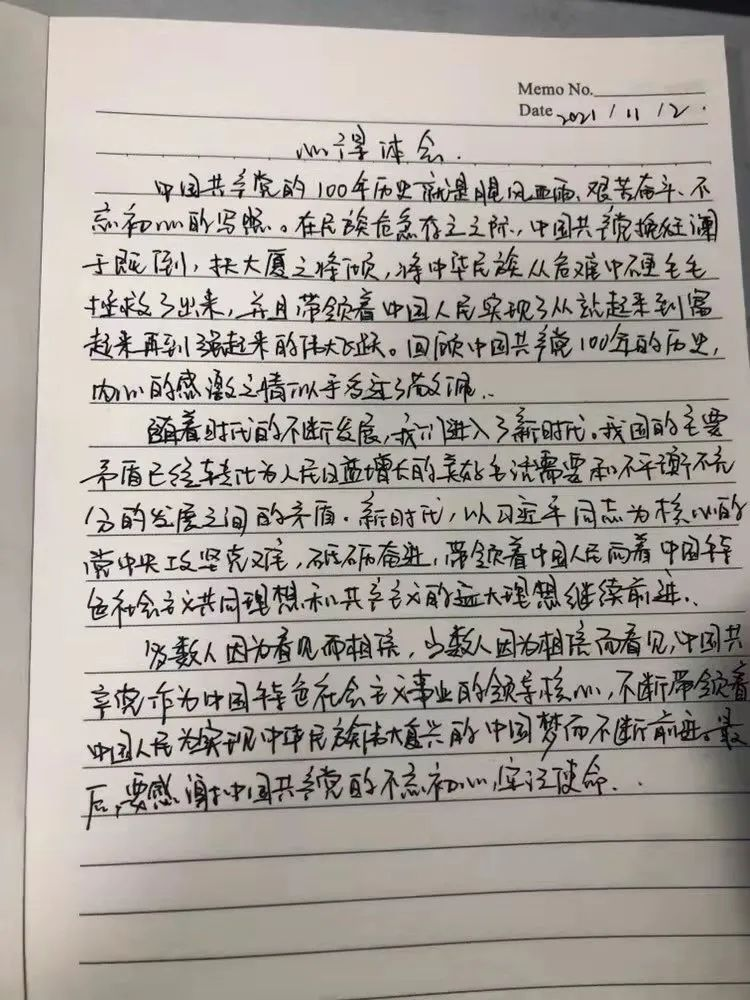 Memo No.
Date 2021/11/2.
心得体会.
中国共产党的100年历史就是腥风血雨、艰苦奋斗、不
忘初心的写照。在民族危急存亡之际,中国共产党挽狂澜
于既倒,扶大厦之将倾,将中华民族从危难中硬生生
拯救了出来,并且带领着中国人民实现了从站起来到富
起来再到强起来的伟大飞跃。回顾中国共产党100年的历史,
内心的感激之情似乎
随着时代的不断发展,我们进入了新时代。我国的主要
矛盾已经转化为人民日益增长的美好生活需要和不平衡不充
分的发展之间的矛盾.新时代,以习近平同志为核心的
党中央攻坚克难,砥砺奋进,带领着中国人民向着中国特
色社会主义共同理想和共产主义的远大理想继续前进..
多数人因为看见而相信,少数人因为相信而看见,中国共
产党作为中国特色社会主义事业的领导核心,不断带领着
中国人民为实现中华民族伟大复兴的中国梦而不断前进。最
后,要感谢中国共产党的不忘初心,牢记使命..